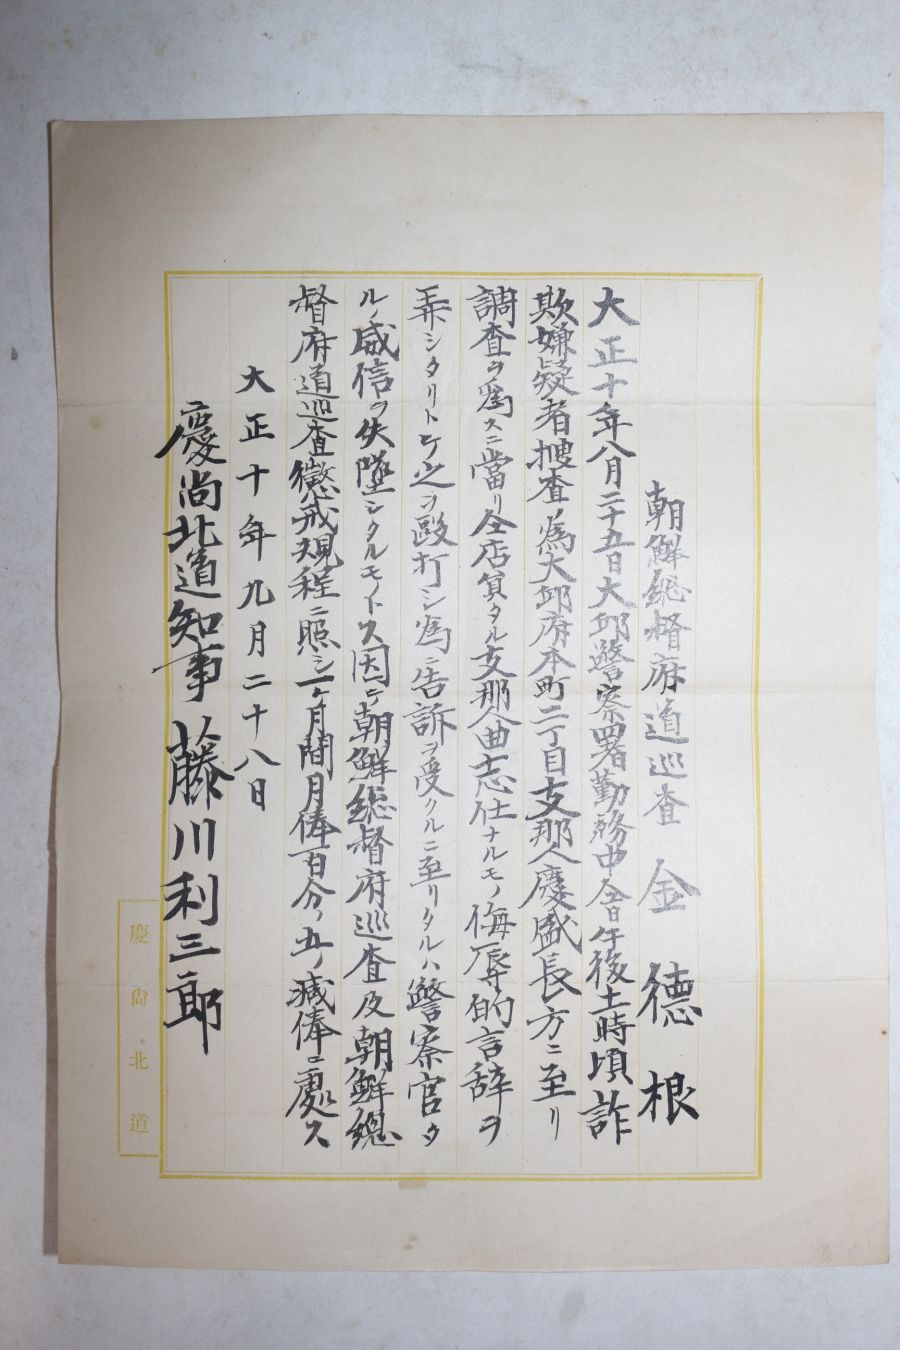 朝鮮総督府道巡査 金德根
大正十年八月二十五日大邱警察署勤務中仝日午後十一時頃詐
欺嫌疑者捜査ノ為大邱府本町二丁目支那人慶盛長方ニ至リ
調査ヲ為スニ當リ仝店員タル支那人曲志仕ナルモノ侮辱的言辞ヲ
弄シタリトテ之ヲ毆打シ為ニ告訴ヲ受クルニ至リタルハ警察官タ
ルノ威信ヲ失墜シタルモノトス因テ朝鮮総督府巡査及朝鮮総
督府道巡査懲戒規程ニ照シ一ヶ月間月俸百分ノ五ノ減俸ニ處ス
大正十年九月二十八日
慶尚北道知事藤川利三郎
慶尚北道